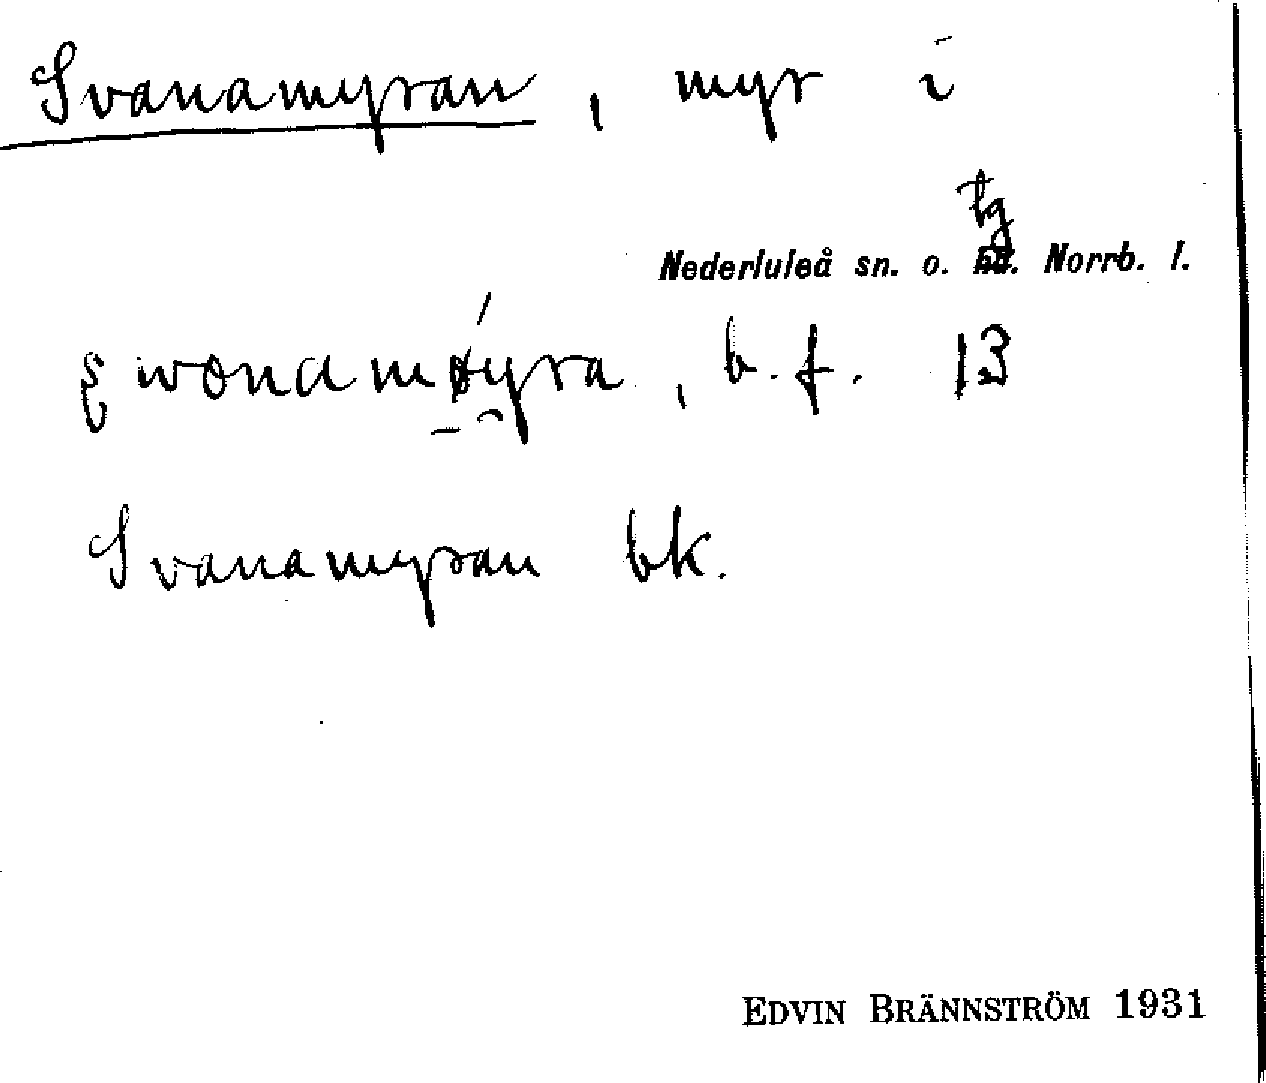 Svanamyran, myr i
tg
Nederluleå sn. o. hd. Norrb. l.
, b. f. 13
Svanamyran bk.
EDVIN BRÄNNSTRÖM 1931